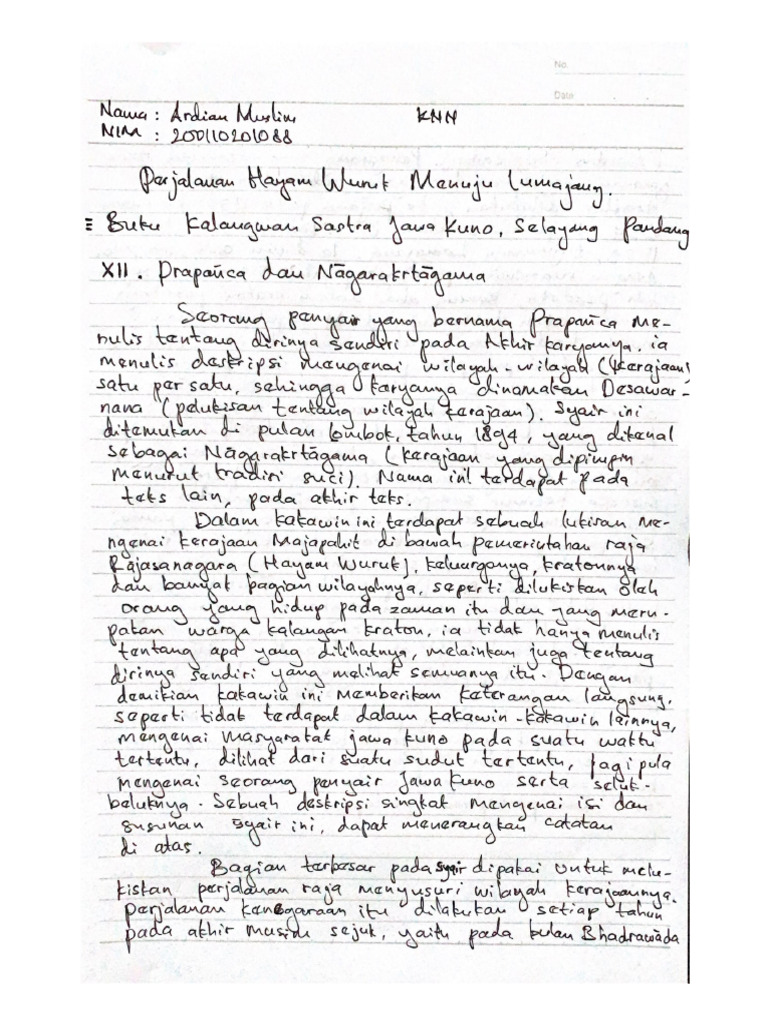 No.
Date
Nama : Ardian Muslim KNN
NIM : 200110201088
Perjalanan Hayam Wuruk Menuju Lumajang.
Buku Kalangwan Sastra Jawa Kuno, Selayang Pandang
XII. Prapañca dan Nāgarakrtāgama
Seorang penyair yang bernama Prapañca me-
nulis tentang dirinya sendiri pada Akhir karyanya. ia
menulis deskripsi mengenai wilayah-wilayah (kerajaan)
satu per satu, sehingga karyanya dinamakan Desawar-
nana (pelukisan tentang wilayah kerajaan). Syair ini
ditemukan di pulau lombok, tahun 1894, yang dikenal
sebagai Nāgarakrtāgama (kerajaan yang dipimpin
menurut tradisi suci). Nama ini terdapat pada
teks lain, pada akhir teks.
Dalam kakawin ini terdapat sebuah lukisan me-
ngenai kerajaan Majapahit di bawah pemerintahan raja
Rajasanagara (Hayam Wuruk), keluarganya, kratonnya
dan banyak bagian wilayahnya, seperti dilukiskan olah
orang yang hidup pada zaman itu dan yang meru-
pakan warga kalangan kraton, ia tidak hanya menulis
tentang apa yang dilihatnya, melainkan juga tentang
dirinya sendiri yang melihat semuanya itu. Dengan
demikian kakawin ini memberikan keterangan langsung,
seperti tidak terdapat dalam kakawin-kakawin lainnya,
mengenai masyarakat jawa kuno pada suatu waktu
tertentu, dilihat dari suatu sudut tertentu, lagi pula
mengenai seorang penyair Jawa Kuno serta seluk-
beluknya. Sebuah deskripsi singkat mengenai isi dan
susunan syair ini, dapat menerangkan catatan
di atas.
Bagian terbesar pada syair dipakai untuk melu-
kiskan perjalanan raja menyusuri wilayah kerajaannya.
perjalanan kenegaraan itu dilakukan setiap tahun
pada akhir musim sejuk, yaitu pada bulan Bhadrawada